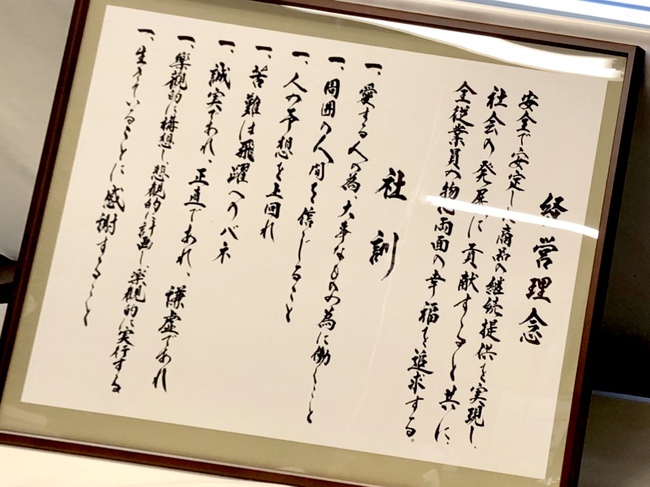 経営理念
安全で安定した商品の継続提供を実現し
社会の発展に貢献すると共に、
全従業員の物心両面の幸福を追求する。
社訓
一、愛する人の為、大事なものの為に働くこと
一、周囲の人間を信じること
一、人の予想を上回れ
一、苦難は飛躍へのバネ
一、誠実であれ、正直であれ、謙虚であれ
一、楽観的に構想し悲観的に計画し楽観的に実行する
一、生きていることに感謝すること